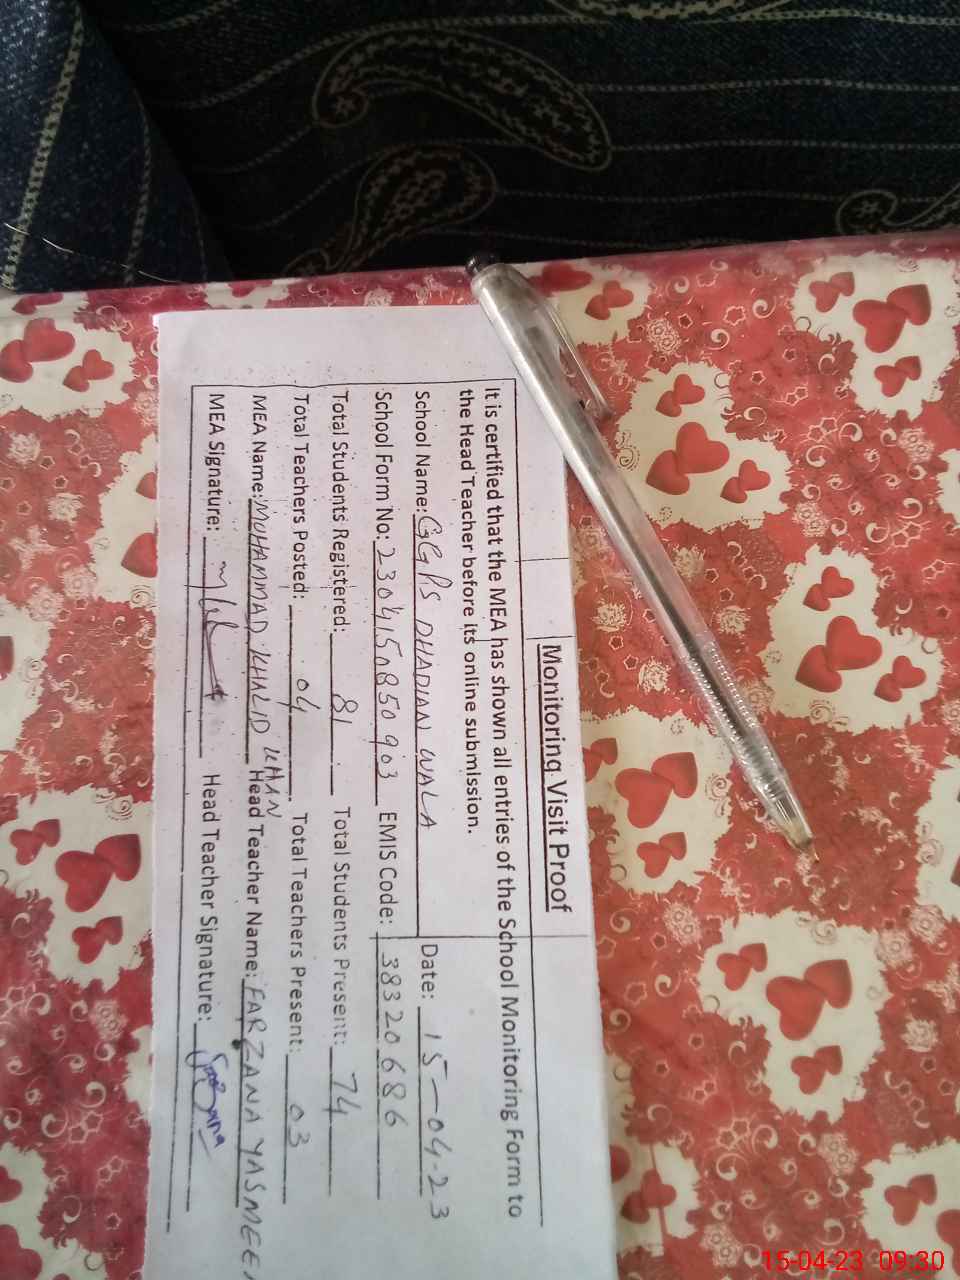 Monitoring Visit Proof
It is certified that the MEA has shown all entries of the School Monitoring Form to
the Head Teacher before its online submission.
School Name: GGPS DHADIAN WALA Date: 15-04-23
School Form No: 2304150850903 EMIS Code: 38320686
Total Students Registered: 81 Total Students Present: 74
Total Teachers Posted: 04 Total Teachers Present: 03
MEA Name: MUHAMMAD KHALID KHAN Head Teacher Name: FARZANA YASMEEN
MEA Signature: Head Teacher Signature: Farzana
15-04-23 09:30